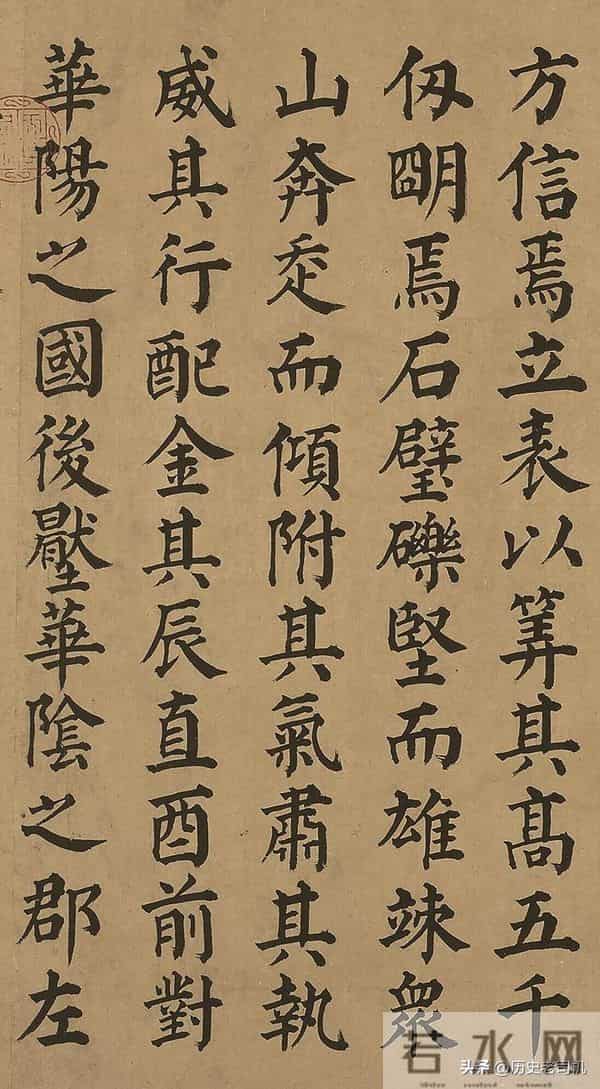 方信焉立表以筭其髙五千
仭朙焉石壁礫堅而雄竦衆
山奔走而傾附其氣肅其執
威其行配金其辰直酉前對
華陽之國後壓華陰之郡左
若水网
头条 @历史老司机